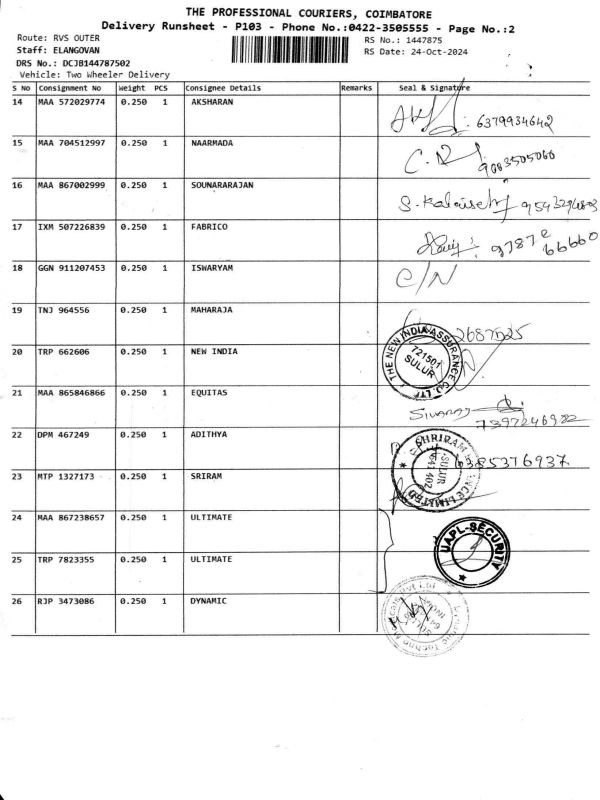 THE PROFESSIONAL COURIERS, COIMBATORE
Delivery Runsheet - P103 - Phone No.:0422-3505555 - Page No.:2
Route: RVS OUTER
RS No.: 1447875
Staff: ELANGOVAN
RS Date: 24-Oct-2024
DRS No.: DCJB144787502
Vehicle: Two Wheeler Delivery
S No Consignment No Weight PCS Consignee Details Remarks Seal & Signature
14 MAA 572029774 0.250 1 AKSHARAN 6379934642
15 MAA 704512997 0.250 1 NAARMADA
16 MAA 867002999 0.250 1 SOUNARARAJAN
17 IXM 507226839 0.250 1 FABRICO 97872 66660
18 GGN 911207453 0.250 1 ISWARYAM C/N
19 TNJ 964556 0.250 1 MAHARAJA
20 TRP 662606 0.250 1 NEW INDIA THE NEW INDIA ASSURANCE CO. LTD 721501 SULUR
21 MAA 865846866 0.250 1 EQUITAS 7397246982
22 DPM 467249 0.250 1 ADITHYA 6385376937
23 MTP 1327173 0.250 1 SRIRAM SHRIRAM FINANCE LIMITED SULUR 641 402
24 MAA 867238657 0.250 1 ULTIMATE UAPL-SECURITY
25 TRP 7823355 0.250 1 ULTIMATE
26 RJP 3473086 0.250 1 DYNAMIC